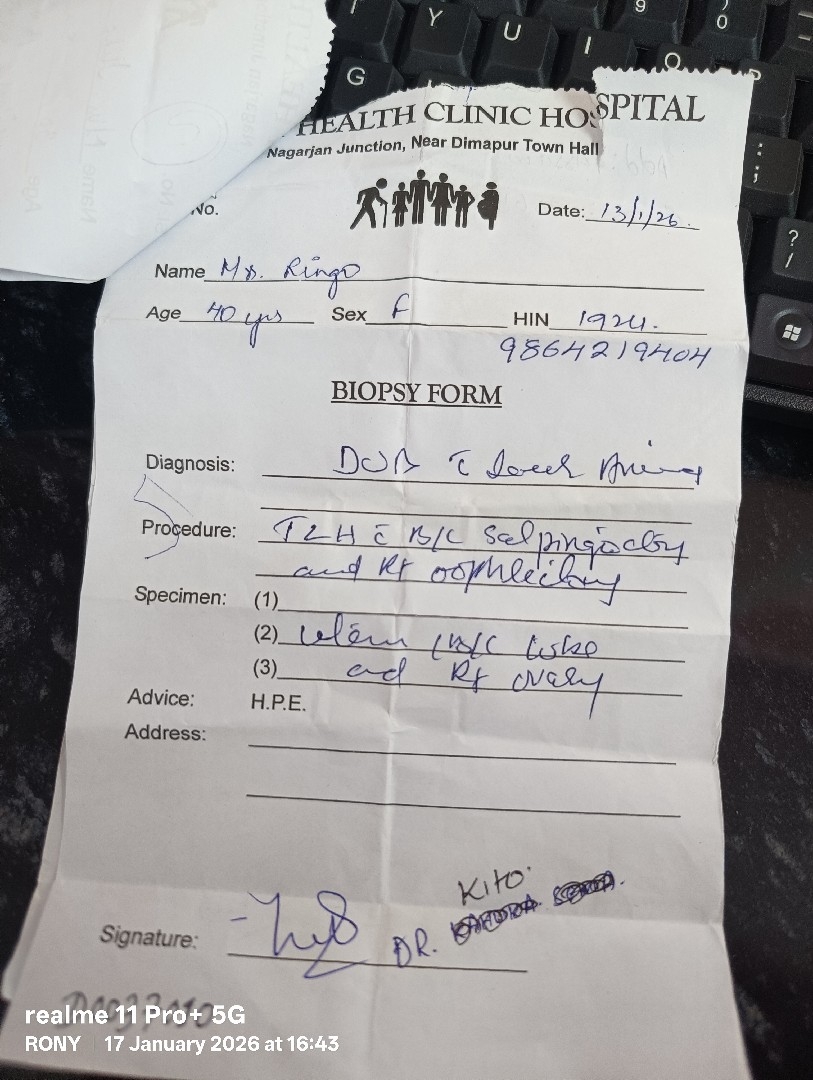 HEALTH CLINIC HOSPITAL
Nagarjan Junction, Near Dimapur Town Hall
No.
Date: 13/1/26.
Name Ms. Ringo
Age 40 yrs Sex F HIN 1924.
9864219404
BIOPSY FORM
Diagnosis: DUB c̄
Procedure: TLH c̄ B/L Salpingectomy
and Rt oophrectomy
Specimen: (1)
(2) uterus B/L tube
(3) and Rt ovary
Advice: H.P.E.
Address:
KITO
Signature: DR.
realme 11 Pro+ 5G
RONY 17 January 2026 at 16:43